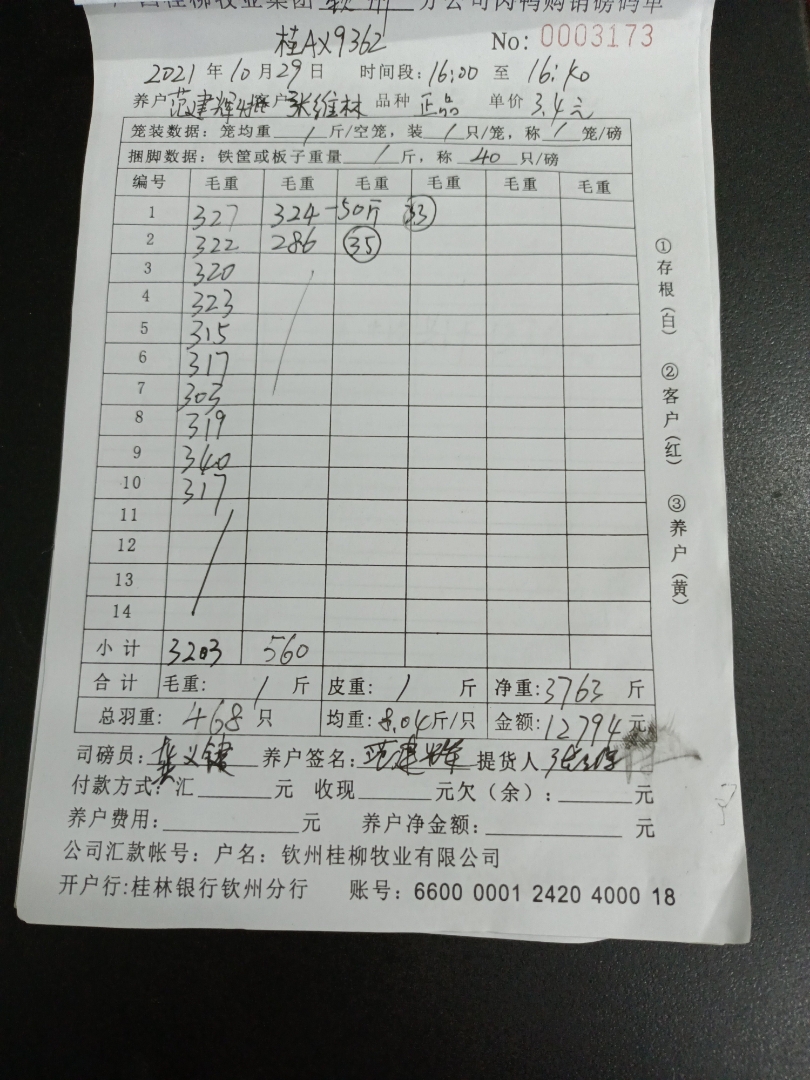 广西桂柳牧业集团 钦州 分公司肉鸭购销磅码单
桂AX9362 No: 0003173
2021 年 10 月 29 日 时间段: 16:00 至 16:40
养户 范建辉 客户 张维林 品种 正品 单价 3.4元
笼装数据: 笼均重 / 斤/空笼, 装 / 只/笼, 称 / 笼/磅
捆脚数据: 铁筐或板子重量 / 斤, 称 40 只/磅
编号 毛重 毛重 毛重 毛重 毛重 毛重
1 327 324 -50斤 33
2 322 286 35
3 320
4 323
5 315
6 317
7 303
8 319
9 340
10 317
11
12
13
14
小计 3203 560
合计 毛重: / 斤 皮重: / 斤 净重: 3763 斤
总羽重: 468 只 均重: 8.04斤/只 金额: 12794 元
司磅员: 养户签名: 范建辉 提货人
付款方式: 汇 元 收现 元欠(余): 元
养户费用: 元 养户净金额: 元
公司汇款帐号: 户名: 钦州桂柳牧业有限公司
开户行:桂林银行钦州分行 账号: 6600 0001 2420 4000 18
①存根(白) ②客户(红) ③养户(黄)